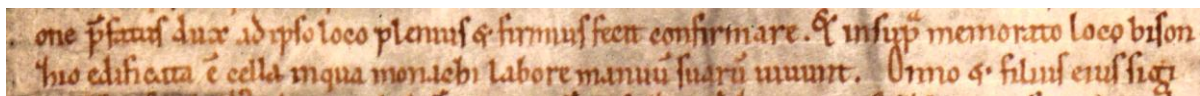 one p̄fatus dux ad ipso loco plenius & firmius fecit confirmare. Et insup̲ᵃ memorato loco bison
hio edificata ē cella in qua monachi labore manuū suarū uiuunt. Onno & filius eius sigi